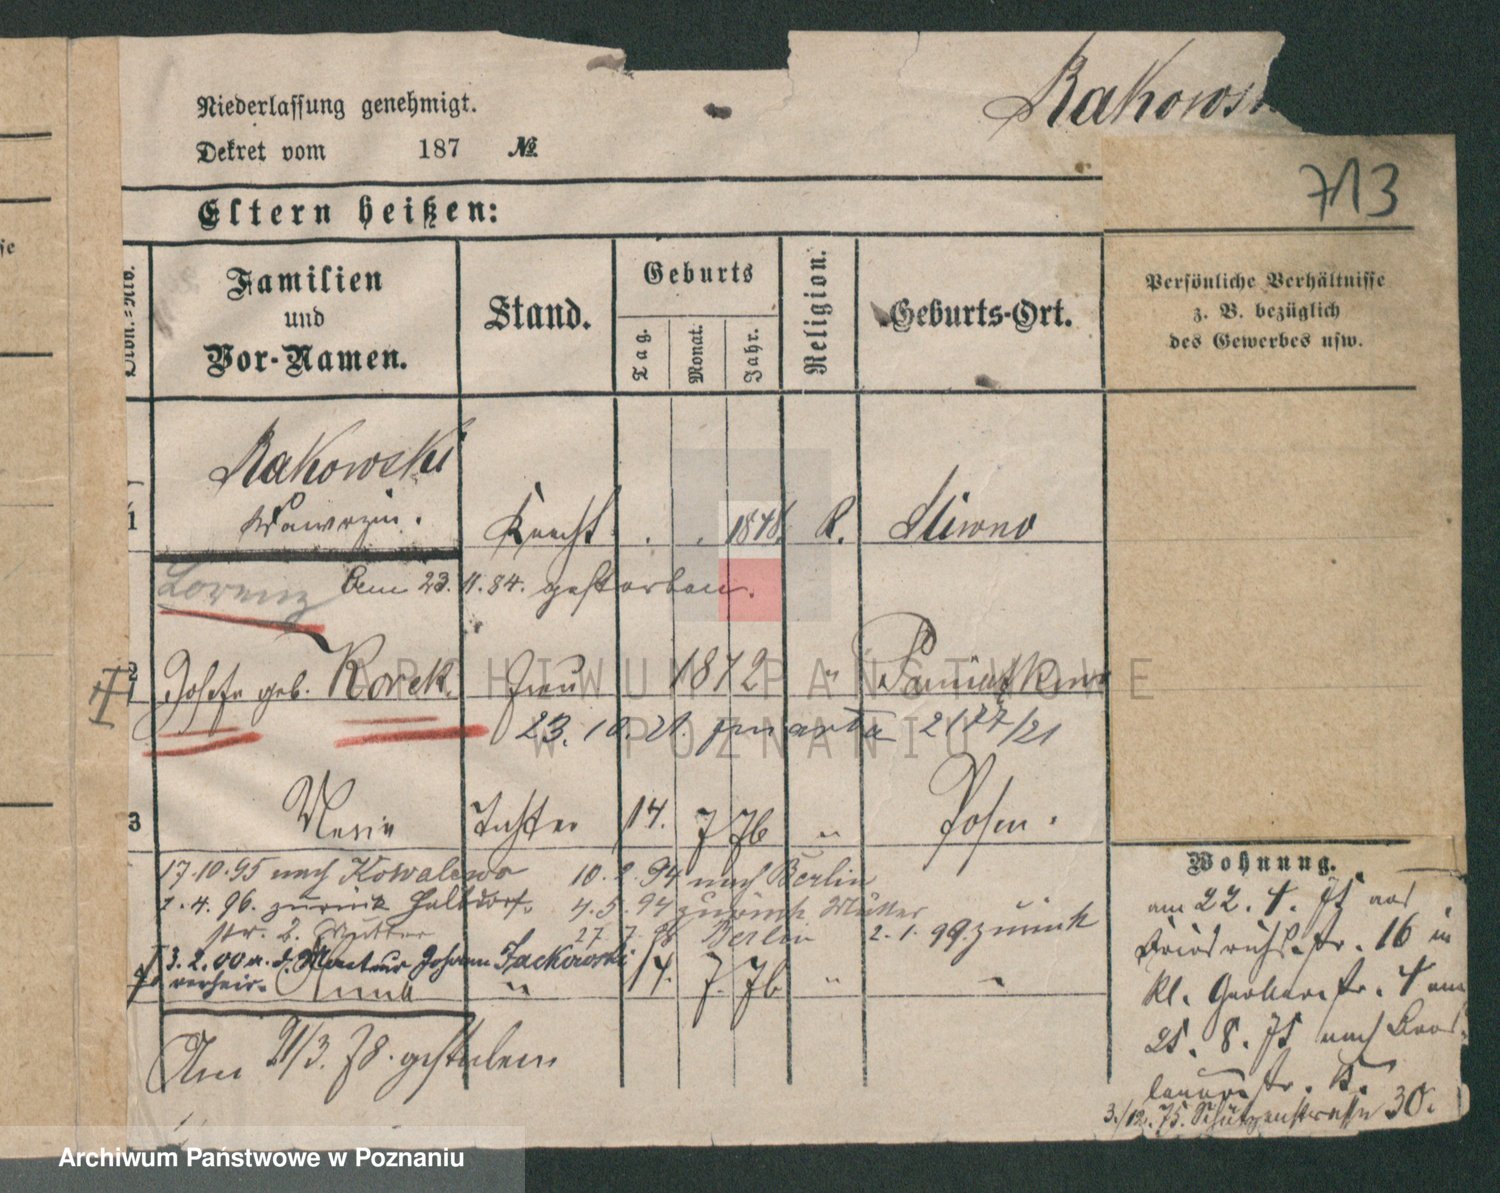 Niederlassung genehmigt.
Dekret vom 187 №
Rakows
713
Eltern heißen:
Familien
und
Vor-Namen.
Stand.
Geburts
Tag.
Monat.
Jahr.
Religion.
Geburts-Ort.
Persönliche Verhältnisse
z. B. bezüglich
des Gewerbes usw.
Rakowski
1 Wawrzin. Knecht . . 1848 R. Sliwno
Lorenz Am 23.11.84. gestorben.
2 Josefa geb. Korek. Frau 1872 "
23.10.21. 2177/21
3 Maria Tochter 14. 7 76 " Posen.
17.10.95 nach Kowalewo 10. 94 nach Berlin
1.4.96. zurück 4.5.94 zurück Mutter
Berlin 2.1.99. zurück
3.2.00 a. d. Johann Zackowski
verheir. Anna " 14. 7. 76 " "
Am 21/3. 78. gestorben
Wohnung.
am 22.4.75 aus
Friedrichstr. 16 in
kl. Gerberstr. 4 am
25.8.75 nach
3./12.75. Schützenstrasse 30.
ARCHIWUM PAŃSTWOWE
W POZNANIU
Archiwum Państwowe w Poznaniu